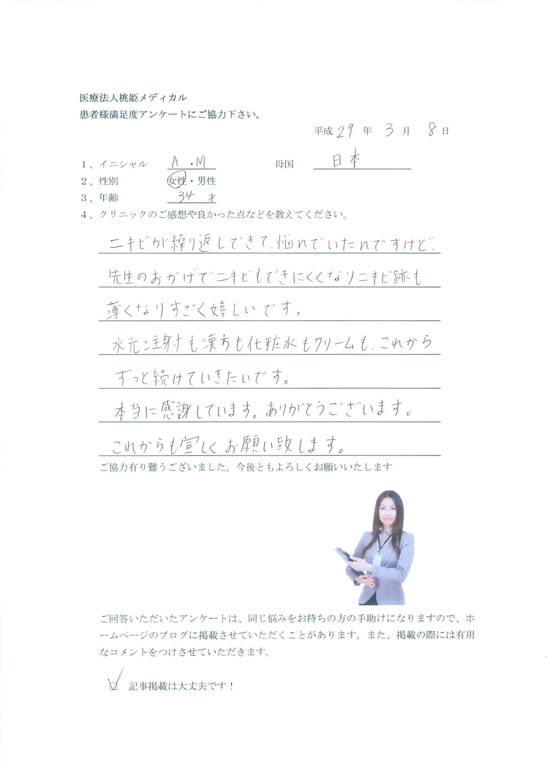 医療法人桃姫メディカル
患者様満足度アンケートにご協力下さい。
平成 29 年 3 月 8 日
1、イニシャル A・M 母国 日本
2、性別 女性・男性
3、年齢 34 才
4、クリニックのご感想や良かった点などを教えてください。
ニキビが繰り返しできて、悩んでいたんですけど、
先生のおかげでニキビもできにくくなりニキビ跡も
薄くなりすごく嬉しいです。
水光注射も漢方も化粧水もクリームも、これから
ずっと続けていきたいです。
本当に感謝しています。ありがとうございます。
これからも宜しくお願い致します。
ご協力有り難うございました。今後ともよろしくお願いいたします
ご回答いただいたアンケートは、同じ悩みをお持ちの方の手助けになりますので、ホ
ームページのブログに掲載させていただくことがあります。また、掲載の際には有用
なコメントをつけさせていただきます。
☑ 記事掲載は大丈夫です！